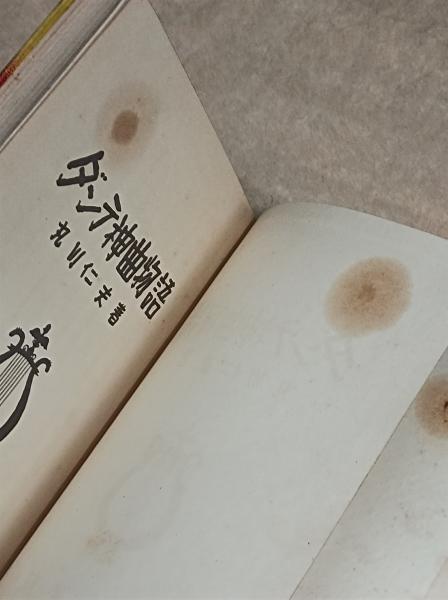 ダンテ神曲物語
丸川仁夫著